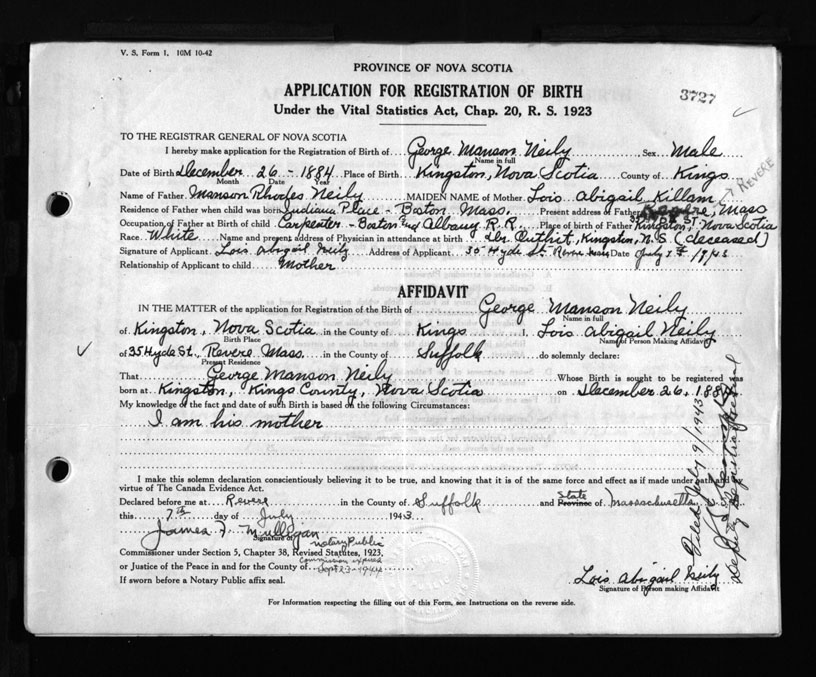 V. S. Form 1. 10M 10-42
PROVINCE OF NOVA SCOTIA
APPLICATION FOR REGISTRATION OF BIRTH
3727
Under the Vital Statistics Act, Chap. 20, R. S. 1923
TO THE REGISTRAR GENERAL OF NOVA SCOTIA
I hereby make application for the Registration of Birth of George Manson Neily Sex Male
Name in full
Date of Birth December 26 - 1884 Place of Birth Kingston, Nova Scotia County of Kings
Month Date Year
REVERE
Name of Father Manson Rhodes Neily MAIDEN NAME of Mother Lois Abigail Killam
Residence of Father when child was born Indiana Place - Boston Mass. Present address of Father Mass
35 HYDE ST.
Occupation of Father at Birth of child Carpenter - Boston and Albany R.R. Place of birth of Father Kingston, Nova Scotia
Race White Name and present address of Physician in attendance at birth Kingston, N.S. (deceased)
Signature of Applicant Lois Abigail Neily Address of Applicant 35 Hyde St. Revere Mass Date July 1943
Relationship of Applicant to child Mother
AFFIDAVIT
IN THE MATTER of the application for Registration of the Birth of George Manson Neily
Name in full
of Kingston, Nova Scotia in the County of Kings I, Lois Abigail Neily
Birth Place Name of Person Making Affidavit
of 35 Hyde St., Revere Mass. in the County of Suffolk do solemnly declare:
Present Residence
That George Manson Neily Whose Birth is sought to be registered was
born at Kingston, Kings County, Nova Scotia on December 26, 1884
My knowledge of the fact and date of such Birth is based on the following Circumstances:
I am his mother
I make this solemn declaration conscientiously believing it to be true, and knowing that it is of the same force and effect as if made under oath and by
virtue of The Canada Evidence Act.
State
Declared before me at Revere in the County of Suffolk and Province of Massachusetts
this 7th day of July 1943
James F. Mulligan
Signature of
Notary Public
Commissioner under Section 5, Chapter 38, Revised Statutes, 1923,
Commission expires
or Justice of the Peace in and for the County of Sept 23-1944
If sworn before a Notary Public affix seal.
Lois Abigail Neily
Signature of Person making Affidavit
For Information respecting the filling out of this Form, see Instructions on the reverse side.
9/1943
Deputy Registrar General